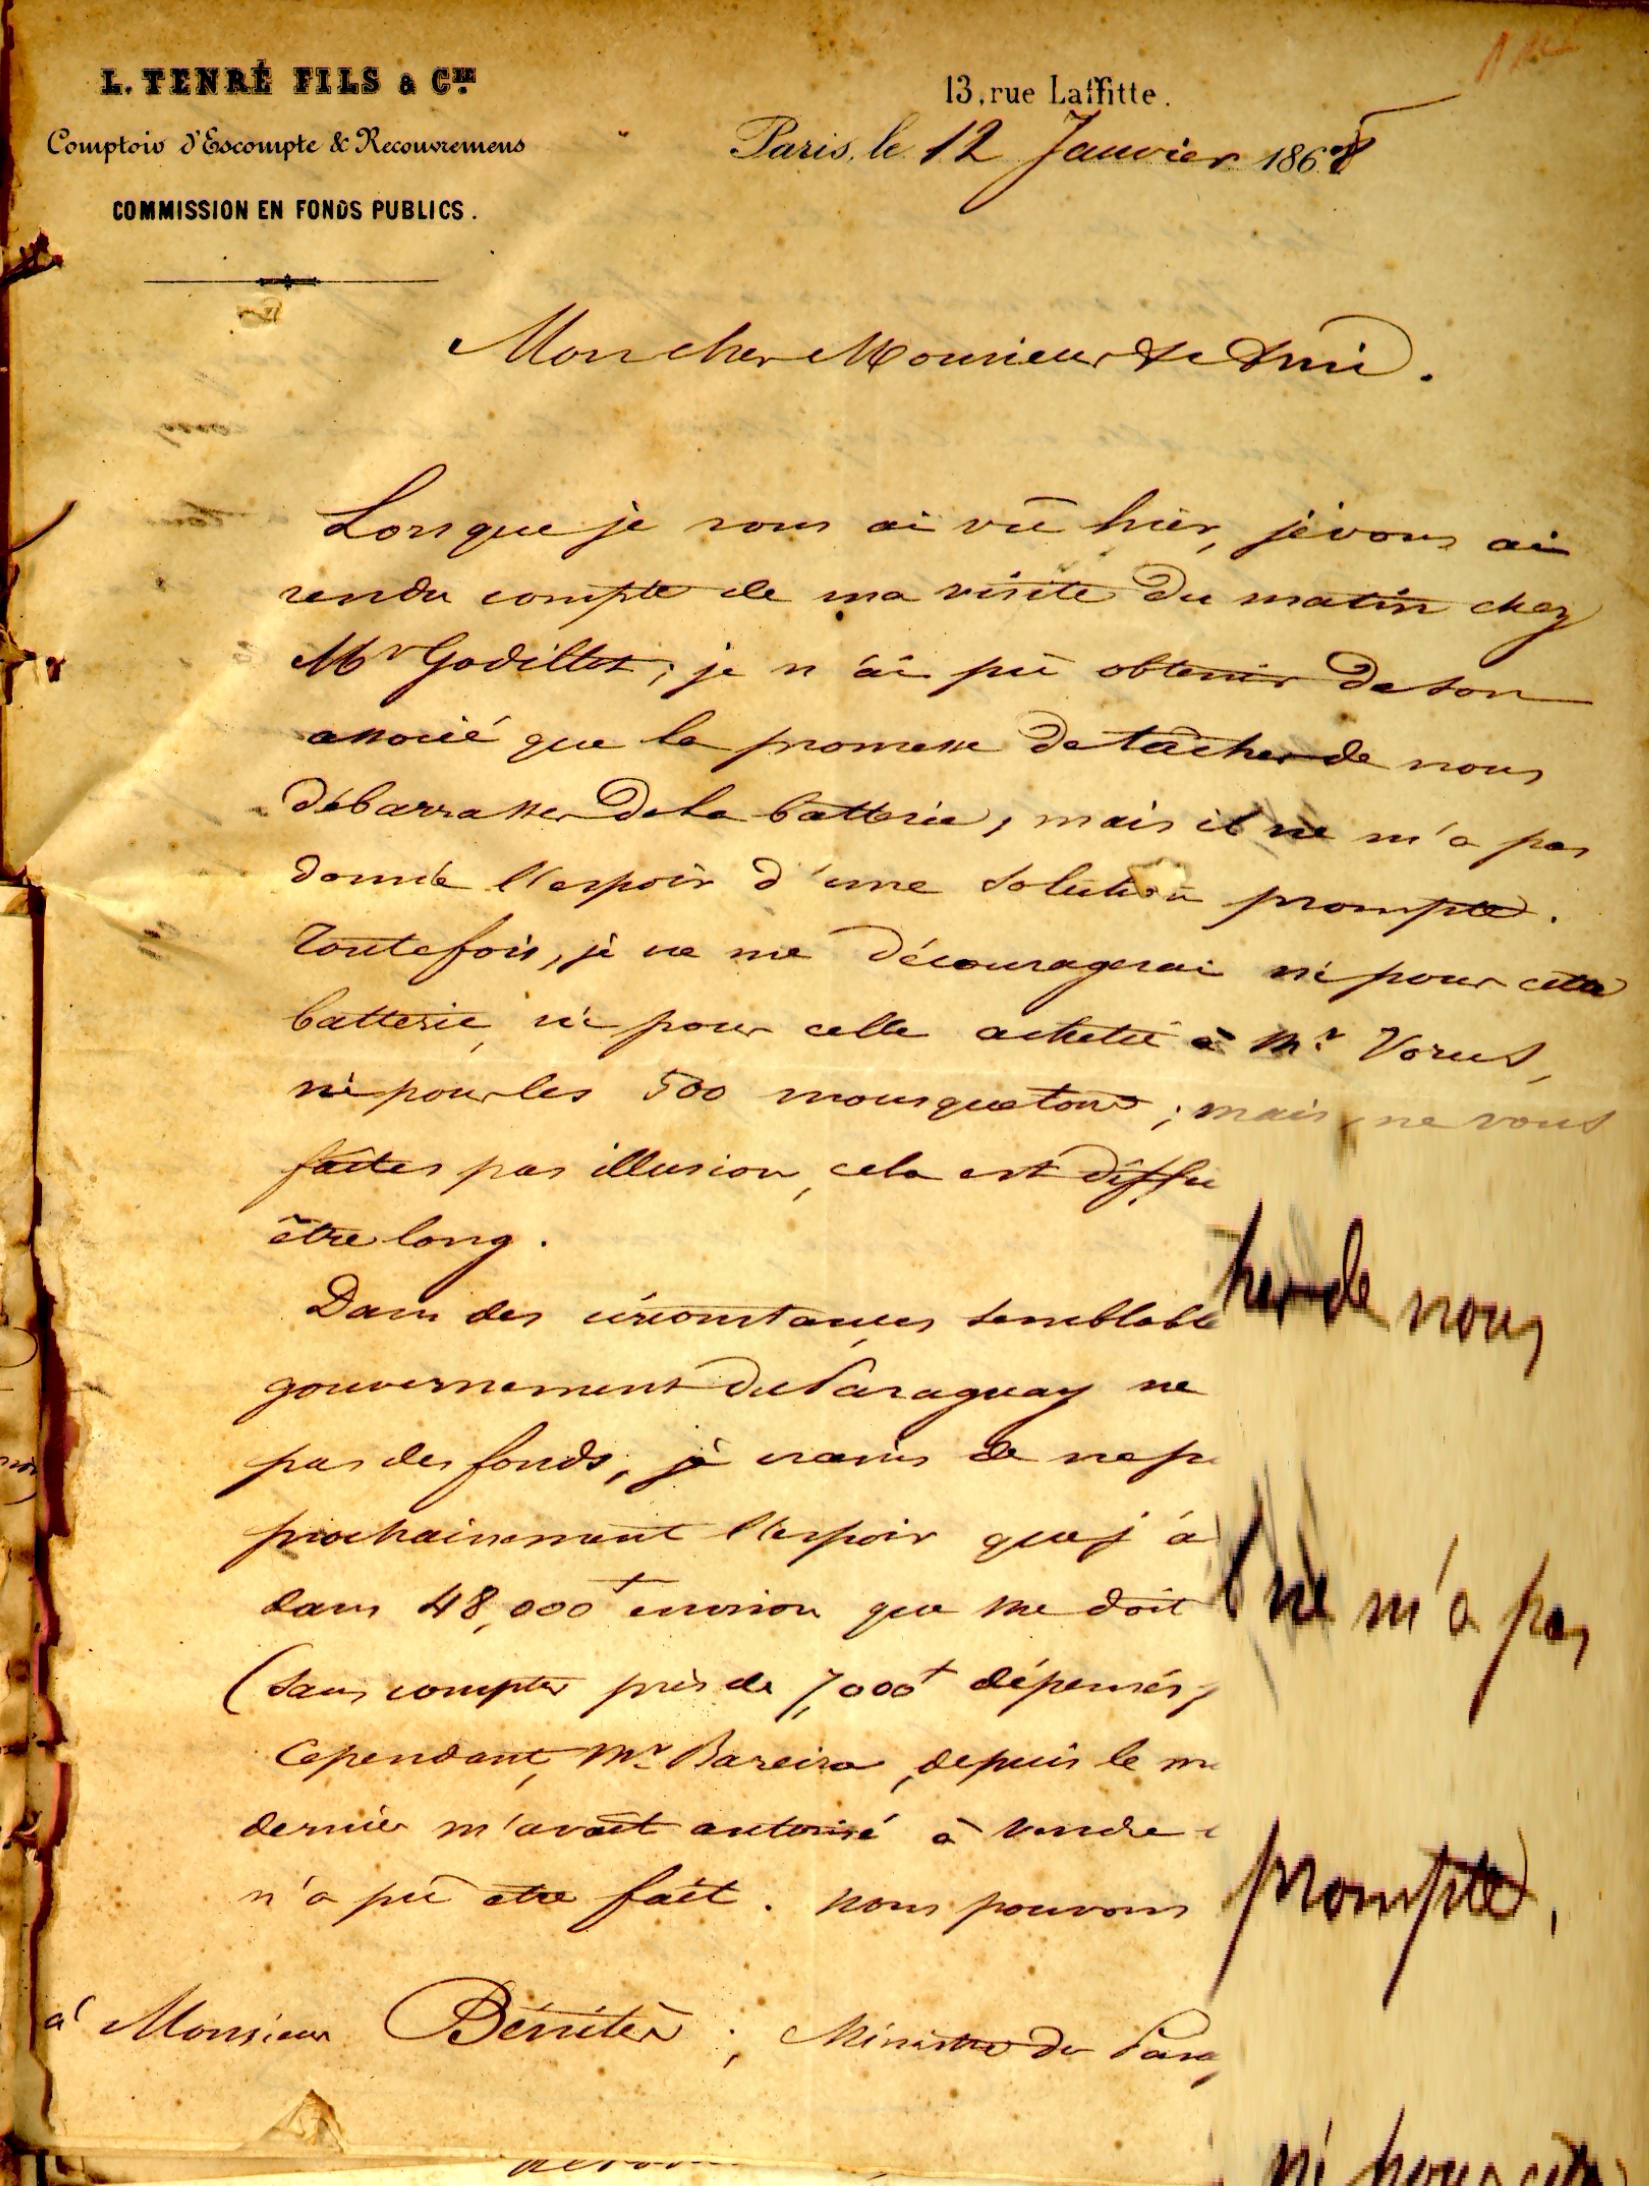 L. TENRÉ FILS & Cie.
Comptoir d'Escompte & Recouvremens
COMMISSION EN FONDS PUBLICS.
13, rue Laffitte.
Paris, le 12 Janvier 1868
Mon cher Monsieur & Ami.
Lorsque je vous ai vû hier, je vous ai
rendu compte de ma visite du matin chez
Mr Godillot; je n'ai pû obtenir de son
associé que la promesse de tâcher de nous
débarrasser de la batterie, mais il ne m'a pas
donnée l'espoir d'une solution prompte.
Toutefois, je ne me découragerai ni pour cette
batterie, ni pour celle achetée à Mr Vorus,
ni pour les 500 mousquetons; mais, ne vous
faites pas illusion, cela est diffi
être long.
Dans des circonstances semblable
gouvernement du Paraguay ne
pas des fonds, je crains de ne p
prochainement l'espoir que j'a
dans 48,000 f environ que me doit
(sans compter près de 7,000 f dépensés
Cependant, Mr Bareiro, depuis le m
dernier m'avait autorisé à vendre
n'a pû etre fait. nous pouvons
à Monsieur Bénitès; Ministre du Parag
her de nous
ne m'a pas
prompte,
ni pour cette